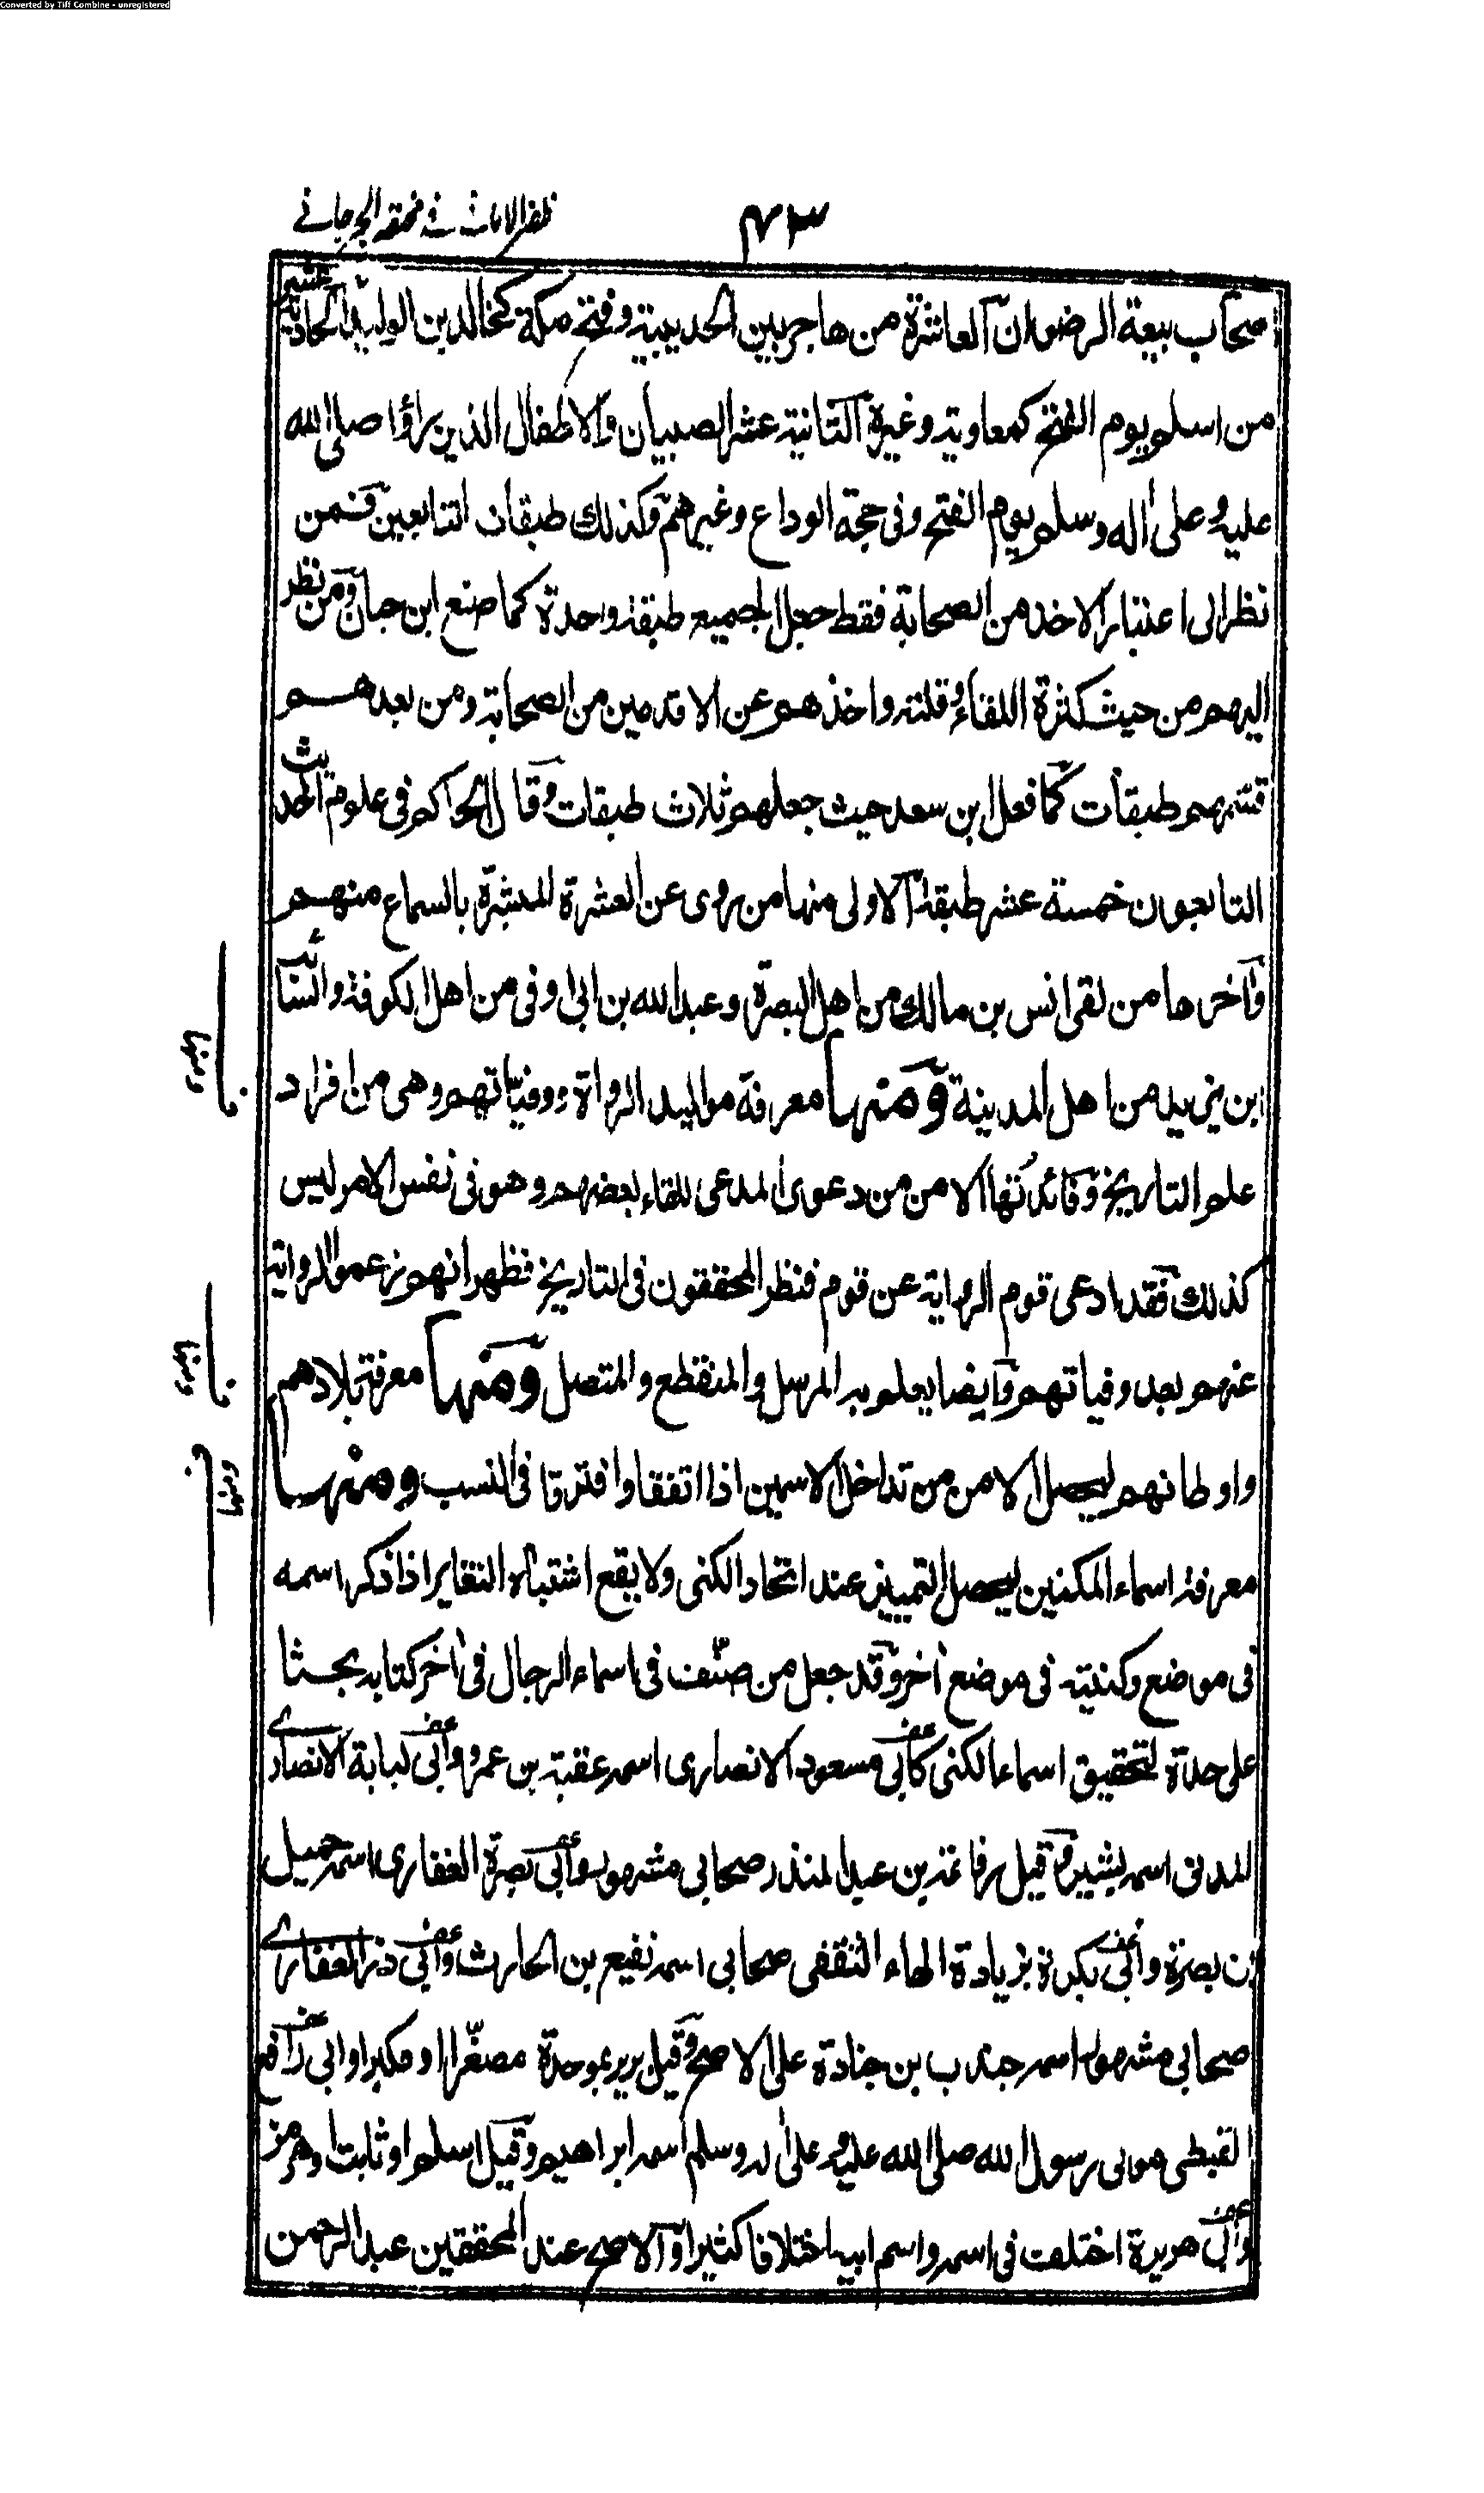 Converted by Tiff Combine - unregistered
ظفر الامانى فى مختصر الجرجانى
٧٣
اصحاب بيعة الرضوان العاشرة من هاجر بين الحديبية وفتح مكة كخالد بن الوليد الحادية عشر
من اسلم يوم الفتح كمعاوية وغيره الثانية عشر الصبيان والاطفال الذين رأوا صلى الله
عليه وعلى اله وسلم يوم الفتح وفى حجة الوداع وغيرهم وكذلك طبقات التابعين فمن
نظر الى اعتبار الاخذ من الصحابة فقط جعل الجميع طبقة واحدة كما صنع ابن حبان ومن نظر
اليهم من حيث كثرة اللقاء وقلته واخذهم عن الاقدمين من الصحابة ومن بعدهم
قسمهم طبقات كما فعل ابن سعد حيث جعلهم ثلاث طبقات وقال الحاكم فى علوم الحديث
التابعون خمسة عشر طبقة الاولى منها من روى عن العشرة المبشرة بالسماع منهم
وآخرها من لقى انس بن مالك من اهل البصرة وعبد الله بن ابى اوفى من اهل الكوفة والسائب
ابن يزيد من اهل المدينة ومنها معرفة مواليد الرواة ووفياتهم وهى من افراد
علم التاريخ وفائدتها الامن من دعوى المدعى للقاء بعضهم وهو فى نفس الامر ليس
كذلك فقد ادعى قوم الرواية عن قوم فنظر المحققون فى التاريخ فظهر انهم زعموا الرواية
عنهم بعد وفياتهم وايضا يعلم به المرسل والمنقطع والمتصل ومنها معرفة بلادهم
واوطانهم ليحصل الامن من تداخل الاسمين اذا اتفقا وافترقا فى النسب ومنها
معرفة اسماء المكنين ليحصل التمييز عند اتحاد الكنى ولا يقع اشتباه التغاير اذا ذكر اسمه
فى موضع وكنيته فى موضع آخر وقد جعل من صنف فى اسماء الرجال فى آخر كتابه بحثا
على حدة لتحقيق اسماء الكنى كابى مسعود الانصارى اسمه عقبة بن عمرو وابى لبابة الانصارى
المدنى اسمه بشير وقيل رفاعة بن عبد المنذر صحابى مشهور وابى بصرة الغفارى اسمه حميل
بن بصرة وابى بكرة بزيادة الهاء الثقفى صحابى اسمه نفيع بن الحارث وابى ذر الغفارى
صحابى مشهور اسمه جندب بن جنادة على الاصح وقيل برير بموحدة مصغرا او مكبرا وابى رافع
القبطى مولى رسول الله صلى الله عليه وعلى اله وسلم اسمه ابراهيم وقيل اسلم او ثابت او هرمز
وابى هريرة اختلف فى اسمه واسم ابيه اختلافا كثيرا والاصح عند المحققين عبد الرحمن